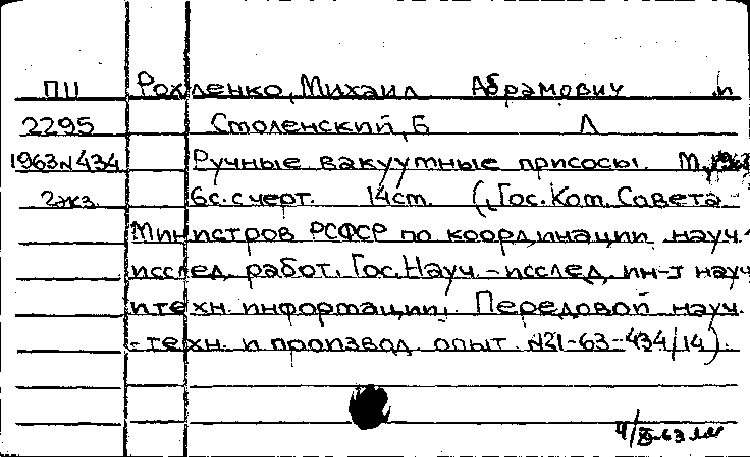 П11 Рохленко, Михаил Абрамович и
2295 Смоленский, Б Л
1963 N 434 Ручные вакуумные присосы. М.,
2жз 6с. с черт. 14см. (Гос. Ком. Совета
Министров РСФСР по координации науч.-
исслед. работ. Гос. Науч. - исслед. ин-т науч
и техн. информации. Передовой науч.
-техн. и производ. опыт. №21-63-434/14).